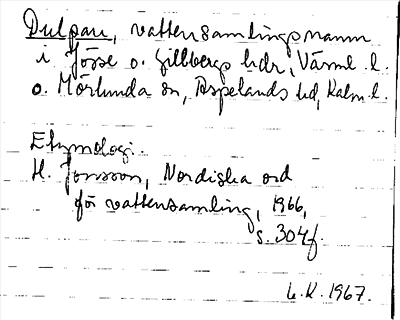 Dulpan, vattensamlingsnamn
i Jösse o. Gillbergs hdr, Värml. l.
o. Mörlunda sn, Aspelands hd, Kalm. l.
Etymologi.
H. Jonsson, Nordiska ord
för vattensamling, 1966,
s. 304f.
L.K. 1967.